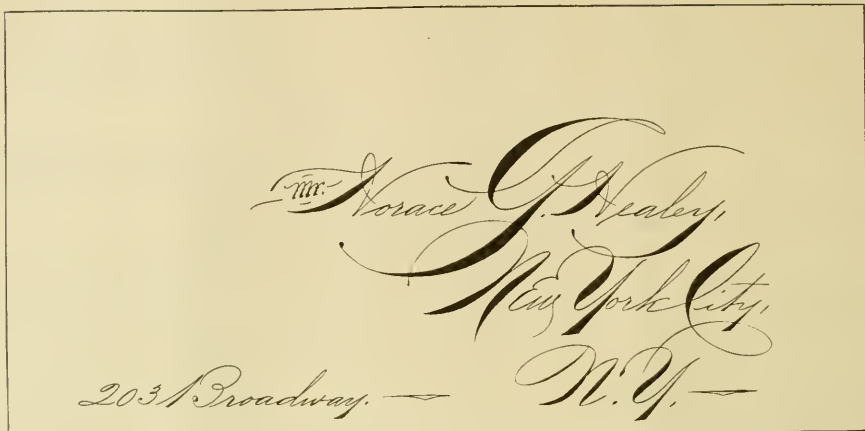 Mr. Horace G. Healey,
New York City,
N.Y.
203 Broadway.